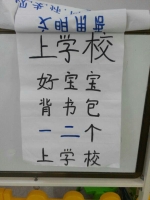 上学校
好宝宝
背书包
一二个
上学校